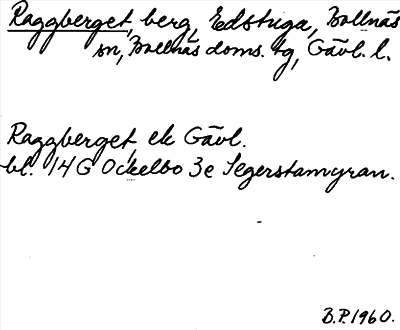 Raggberget, berg, Edstuga, Bollnäs
sn, Bollnäs doms. tg, Gävl. l.
Raggberget, ek Gävl.
bl. 14 G Ockelbo 3e Segerstamyran.
B.P. 1960.